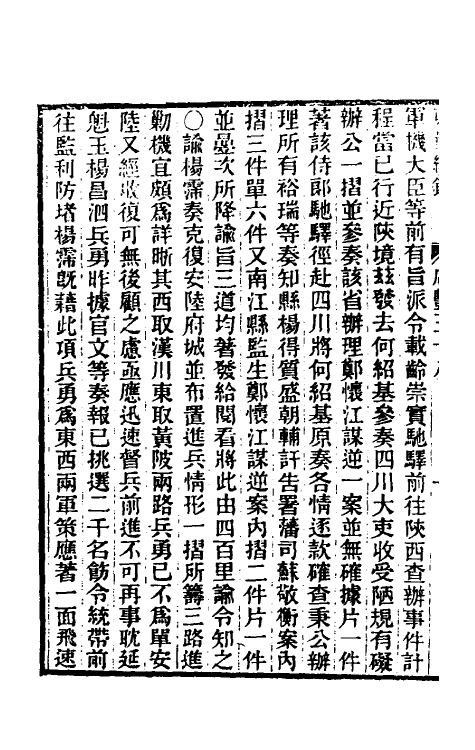 軍機大臣等前有旨派令載齡崇實馳驛前往陝西查辦事件計
程當已行近陝境茲發去何紹基參奏四川大吏收受陋規有礙
辦公一摺並參奏該省辦理鄭懷江謀逆一案並無確據片一件
著該侍郎馳驛徑赴四川將何紹基原奏各情逐款確查秉公辦
理所有裕瑞等奏知縣楊得質盛朝輔訐告署藩司蘇敬衡案內
摺三件單六件又南江縣監生鄭懷江謀逆案內摺二件片一件
並曡次所降諭旨三道均著發給閱看將此由四百里諭令知之
〇諭楊霈奏克復安陸府城並布置進兵情形一摺所籌三路進
勦機宜頗爲詳晰其西取漢川東取黃陂兩路兵勇已不爲單安
陸又經收復可無後顧之慮亟應迅速督兵前進不可再事耽延
魁玉楊昌泗兵勇昨據官文等奏報已挑選二千名飭令統帶前
往監利防堵楊霈旣藉此項兵勇爲東西兩軍策應著一面飛速